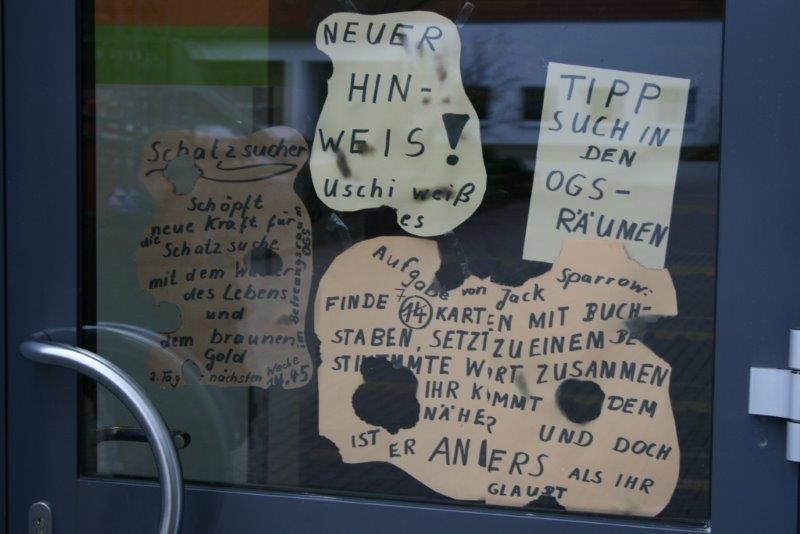 NEUER
HIN-
WEIS!
Uschi weiß
es
TIPP
SUCH IN
DEN
OGS-
RÄUMEN
Schatzsucher
Schöpft
neue Kraft für
die Schatzsuche
mit dem Wasser
des Lebens
und
dem braunen
Gold
2. Tag nächsten Woche
14.45
im Betreungsraum
OGS
Aufgabe von Jack Sparrow:
FINDE 14 KARTEN MIT BUCH-
STABEN, SETZT ZU EINEM BE
STIMMTE WORT ZUSAMMEN
IHR KOMMT DEM
NÄHER UND DOCH
IST ER ANDERS ALS IHR
GLAUBT